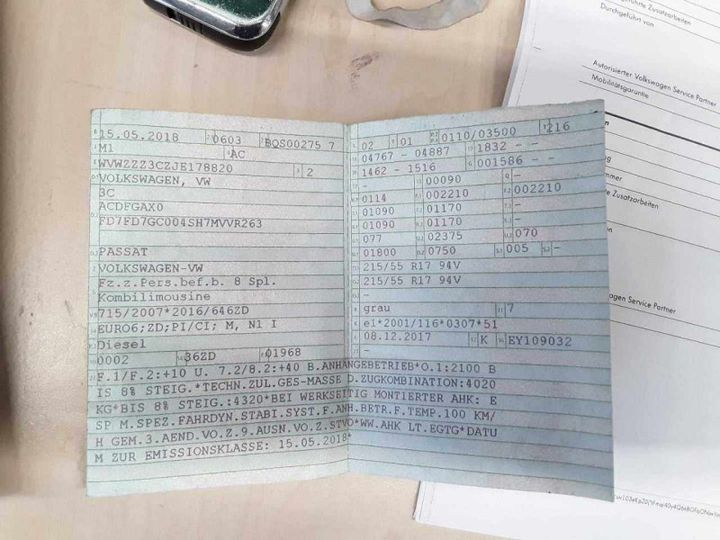 15.05.2018 0603 BQS00275 7
M1 AC
WVWZZZ3CZJE178820 2
VOLKSWAGEN, VW
3C
ACDFGAX0
FD7FD7GC004SH7MVVR263
PASSAT
VOLKSWAGEN-VW
Fz.z.Pers.bef.b. 8 Spl.
Kombilimousine
715/2007*2016/646ZD
EURO6;ZD;PI/CI; M, N1 I
Diesel
0002 36ZD 01968
02 01 0110/03500 216
04767 - 04887 1832 - -
1462 - 1516 001586 - -
- 00090 -
0114 002210 002210
01090 01170 -
01090 01170 -
077 02375 070
01800 0750 005 -
215/55 R17 94V
215/55 R17 94V
-
-
grau 7
e1*2001/116*0307*51
08.12.2017 K EY109032
F.1/F.2:+10 U. 7.2/8.2:+40 B.ANHÄNGEBETRIEB*O.1:2100 B
IS 8% STEIG.*TECHN.ZUL.GES-MASSE D.ZUGKOMBINATION:4020
KG*BIS 8% STEIG.:4320*BEI WERKSEITIG MONTIERTER AHK: E
SP M.SPEZ.FAHRDYN.STABI.SYST.F.ANH.BETR.F.TEMP.100 KM/
H GEM.3.AEND.VO.Z.9.AUSN.VO.Z.STVO*WW.AHK LT.EGTG*DATU
M ZUR EMISSIONSKLASSE: 15.05.2018*
Zusatzarbeiten
Durchgeführt von
Autorisierter Volkswagen Service Partner
Mobilitätsgarantie
Zusatzarbeiten
Service Partner